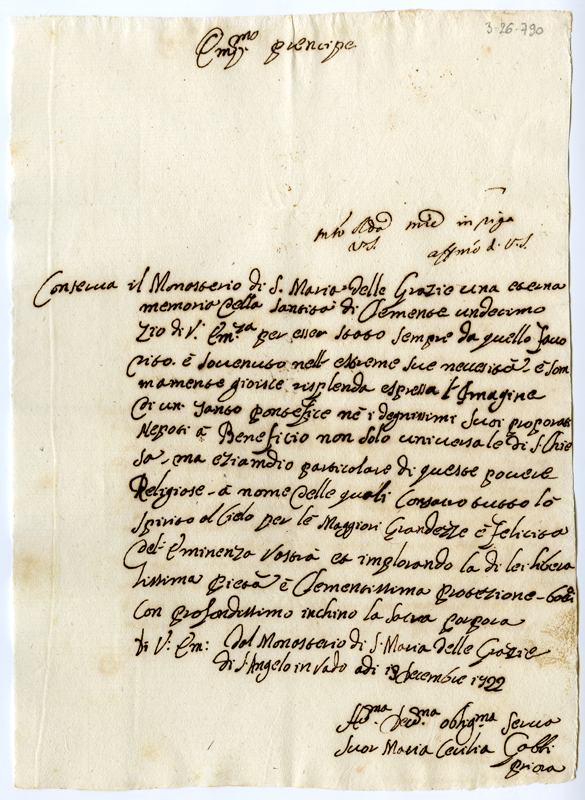 3-26-790
Em.mo prencipe
in riga
V.S. affmo d. V.S.
Conserua il Monasterio di S. Maria delle Grazie una eterna
memoria della Santità di Clemente undecimo
Zio di V. Em.za per esser stato sempre da quello fauo
rito. è souenuto nell estreme sue necessità è som
mamente gioisce risplenda espressa l'Imagine
di un Santo pontefice nè i degnissimi suoi proporati
Nepoti à Beneficio non solo uniuersale di S. Chie
sa, ma eziamdio particolare di queste pouere
Religiose. à nome delle quali consacro tutto lo
spirito al Cielo per le Maggiori Grandezze è felicità
del Eminenza Vostra et implorando la di lei libera
lissima pietà è Clementissima protezione
con profondissimo inchino la sacra porpora
di V. Em: dal Monasterio di S. Maria delle Grazie
di S. Angelo in Vado adi decembre 1722
obligma Serua
Suor Maria Cecilia Gabbi
priora